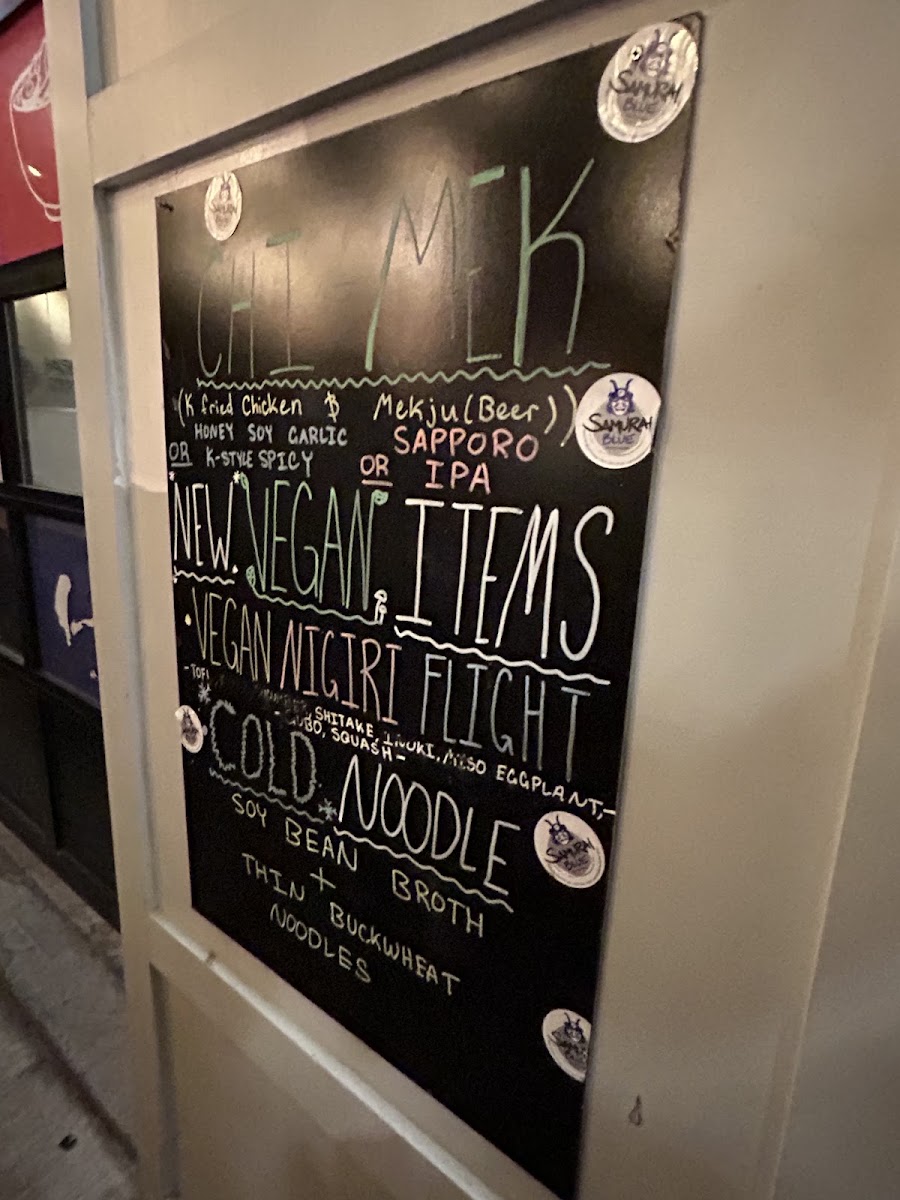 CHI MEK
(K fried Chicken $ Mekju (Beer))
HONEY SOY GARLIC
OR K-STYLE SPICY
SAPPORO
OR IPA
NEW VEGAN ITEMS
VEGAN NIGIRI FLIGHT
SHITAKE, MISO EGGPLANT,-
SQUASH-
COLD NOODLE
SOY BEAN BROTH
+
THIN BUCKWHEAT
NOODLES
SAMURAI
BLUE
SAMURAI
BLUE
SAMURAI
BLUE